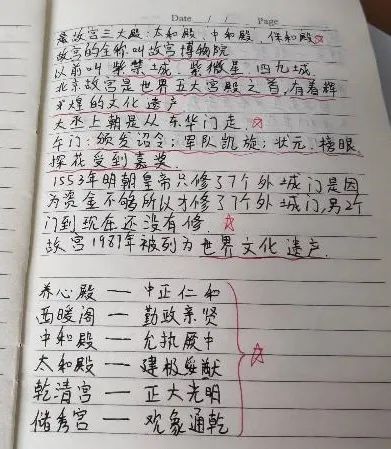 Date / / Page
意故宫三大殿:太和殿、中和殿、保和殿
故宫的全称叫故宫博物院
以前叫紫禁城、紫微星、四九城.
北京故宫是世界五大宫殿之首,有着辉
煌的文化遗产
大丞上朝是从东华门走.
午门:颁发诏令;军队凯旋;状元、榜眼
探花受到嘉奖.
1553年明朝皇帝只修了7个外城门是因
为资金不够所以才修了7个外城门,另2个
门到现在还没有修.
故宫1987年被列为世界文化遗产.
养心殿——中正仁和
西暖阁——勤政亲贤
中和殿——允执厥中
太和殿——建极绥猷
乾清宫——正大光明
储秀宫——观象通乾